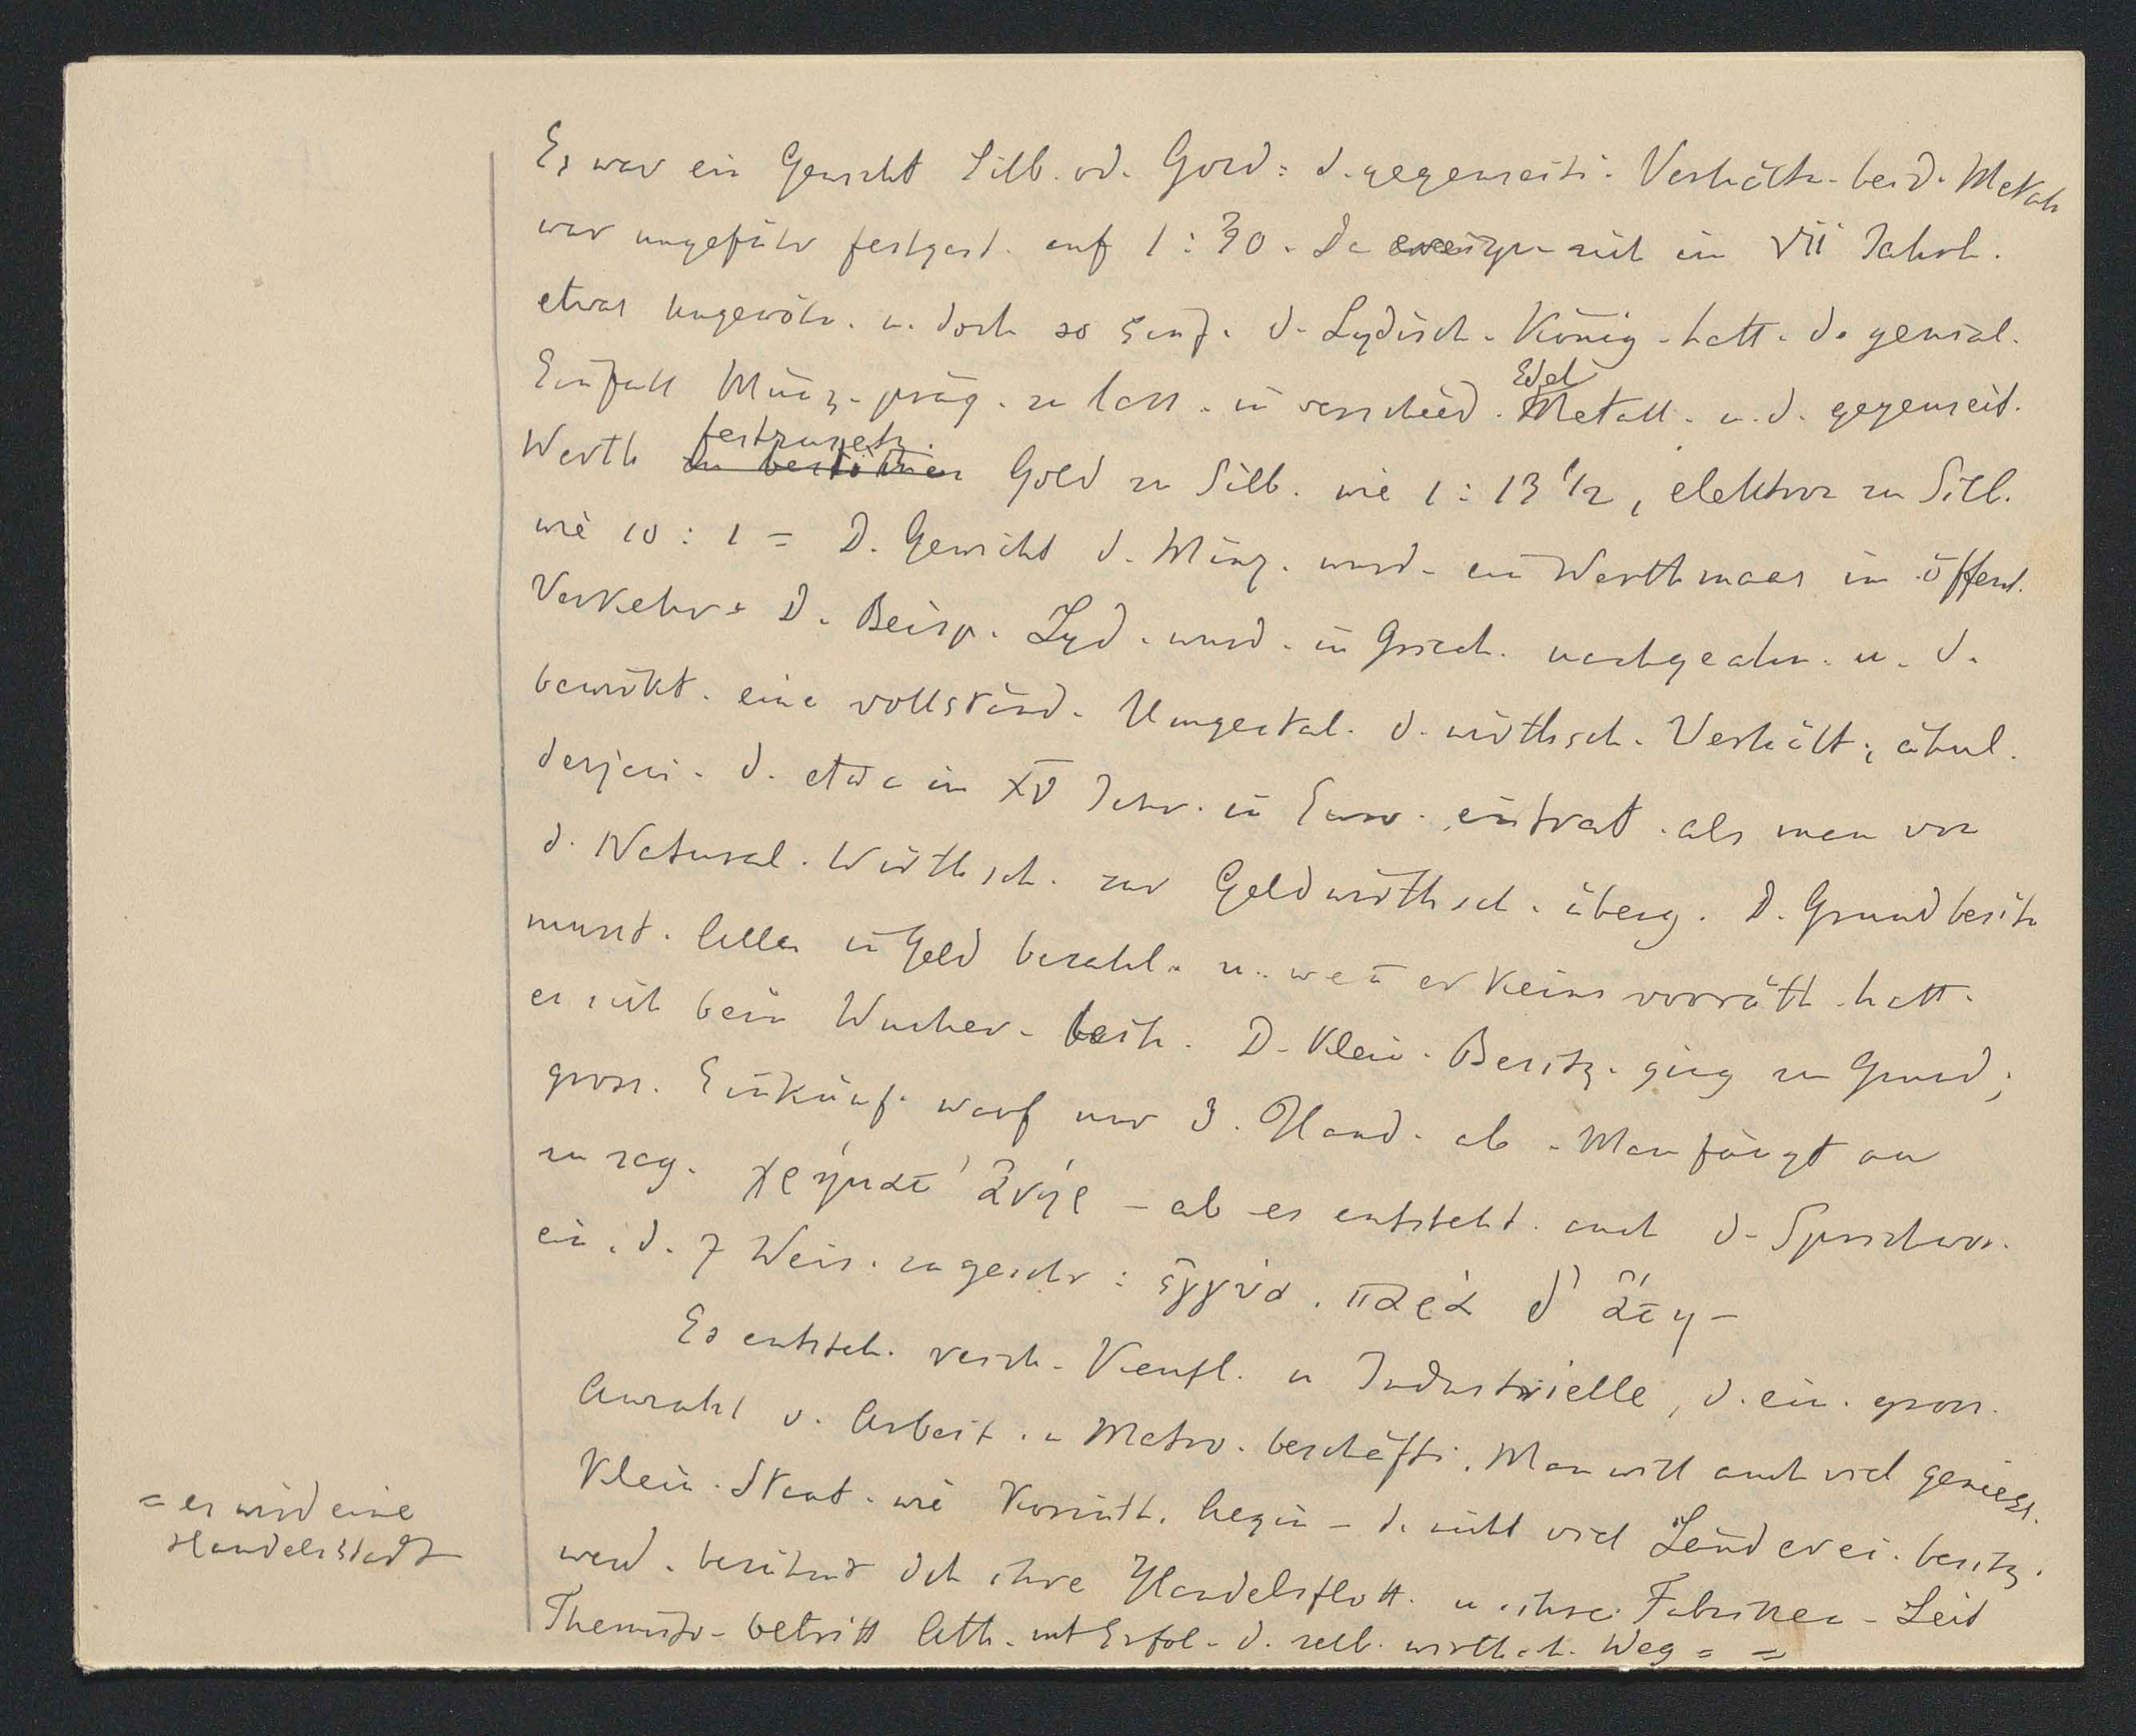 Es war ein Gewicht Silb. od. Gold = d. gegenseiti. Verhältn. beid. Metall
war ungefähr festgest. auf 1 : 30. Da sich im VII Jahrh.
etwas ungewöhn. u. doch so einf. d. Lydisch. König. hatt. d. genial.
Einfall Münz. präg. zu lass. in verschied. Edel Metall. u. d. gegenseit.
Werth festzusetz. Gold zu Silb. wie 1 : 13 1/2, elektron zu Silb.
wie 10 : 1 = D. Gewicht d. Münz. wurd. ein Werthmaas im öffentl.
Verkehr = D. Beisp. Lyd. wurd. in Griech. nachgeahm. u. d.
bewirkt. eine vollständ. Umgestal. d. wirthsch. Verhält., ähnl.
derjeni. d. etwa im XV Jahr. in Euro. eintrat. als man von
d. Natural. Wirthsch. zur Geldwirthsch. überg. D. Grundbesitz
musst. Alles in Geld bezahl. u. wen̄ er keins vorräth. hatt.
es sich beim Wucher. D. Klein. Besitz. ging zu Grund;
gross. Einkünf. warf nur d. Hand. ab. Man fängt an
zu sag. χρήματ' ἀνήρ – ab es entsteht. auch d. Sprichwor.
ein. d. 7 Weis. zugeschr : ἐγγύα. παρὰ δ' ἄτη –
Es entsteh. reich. Kaufl. u Industrielle, d. ein. gross.
Anzahl v. Arbeit. u Matro. beschäfti. Man will auch viel geniess.
Klein. Staat. wie Korinth. Aegin – d. nicht viel Länderei. besitz.
werd. berühmt dch ihre Handelsflott. u. ihre Fabriken – Seit
Themisto. betritt Ath. mit Erfol. d. selb. wirthsch. Weg = =
= es wird eine
Handelsstadt